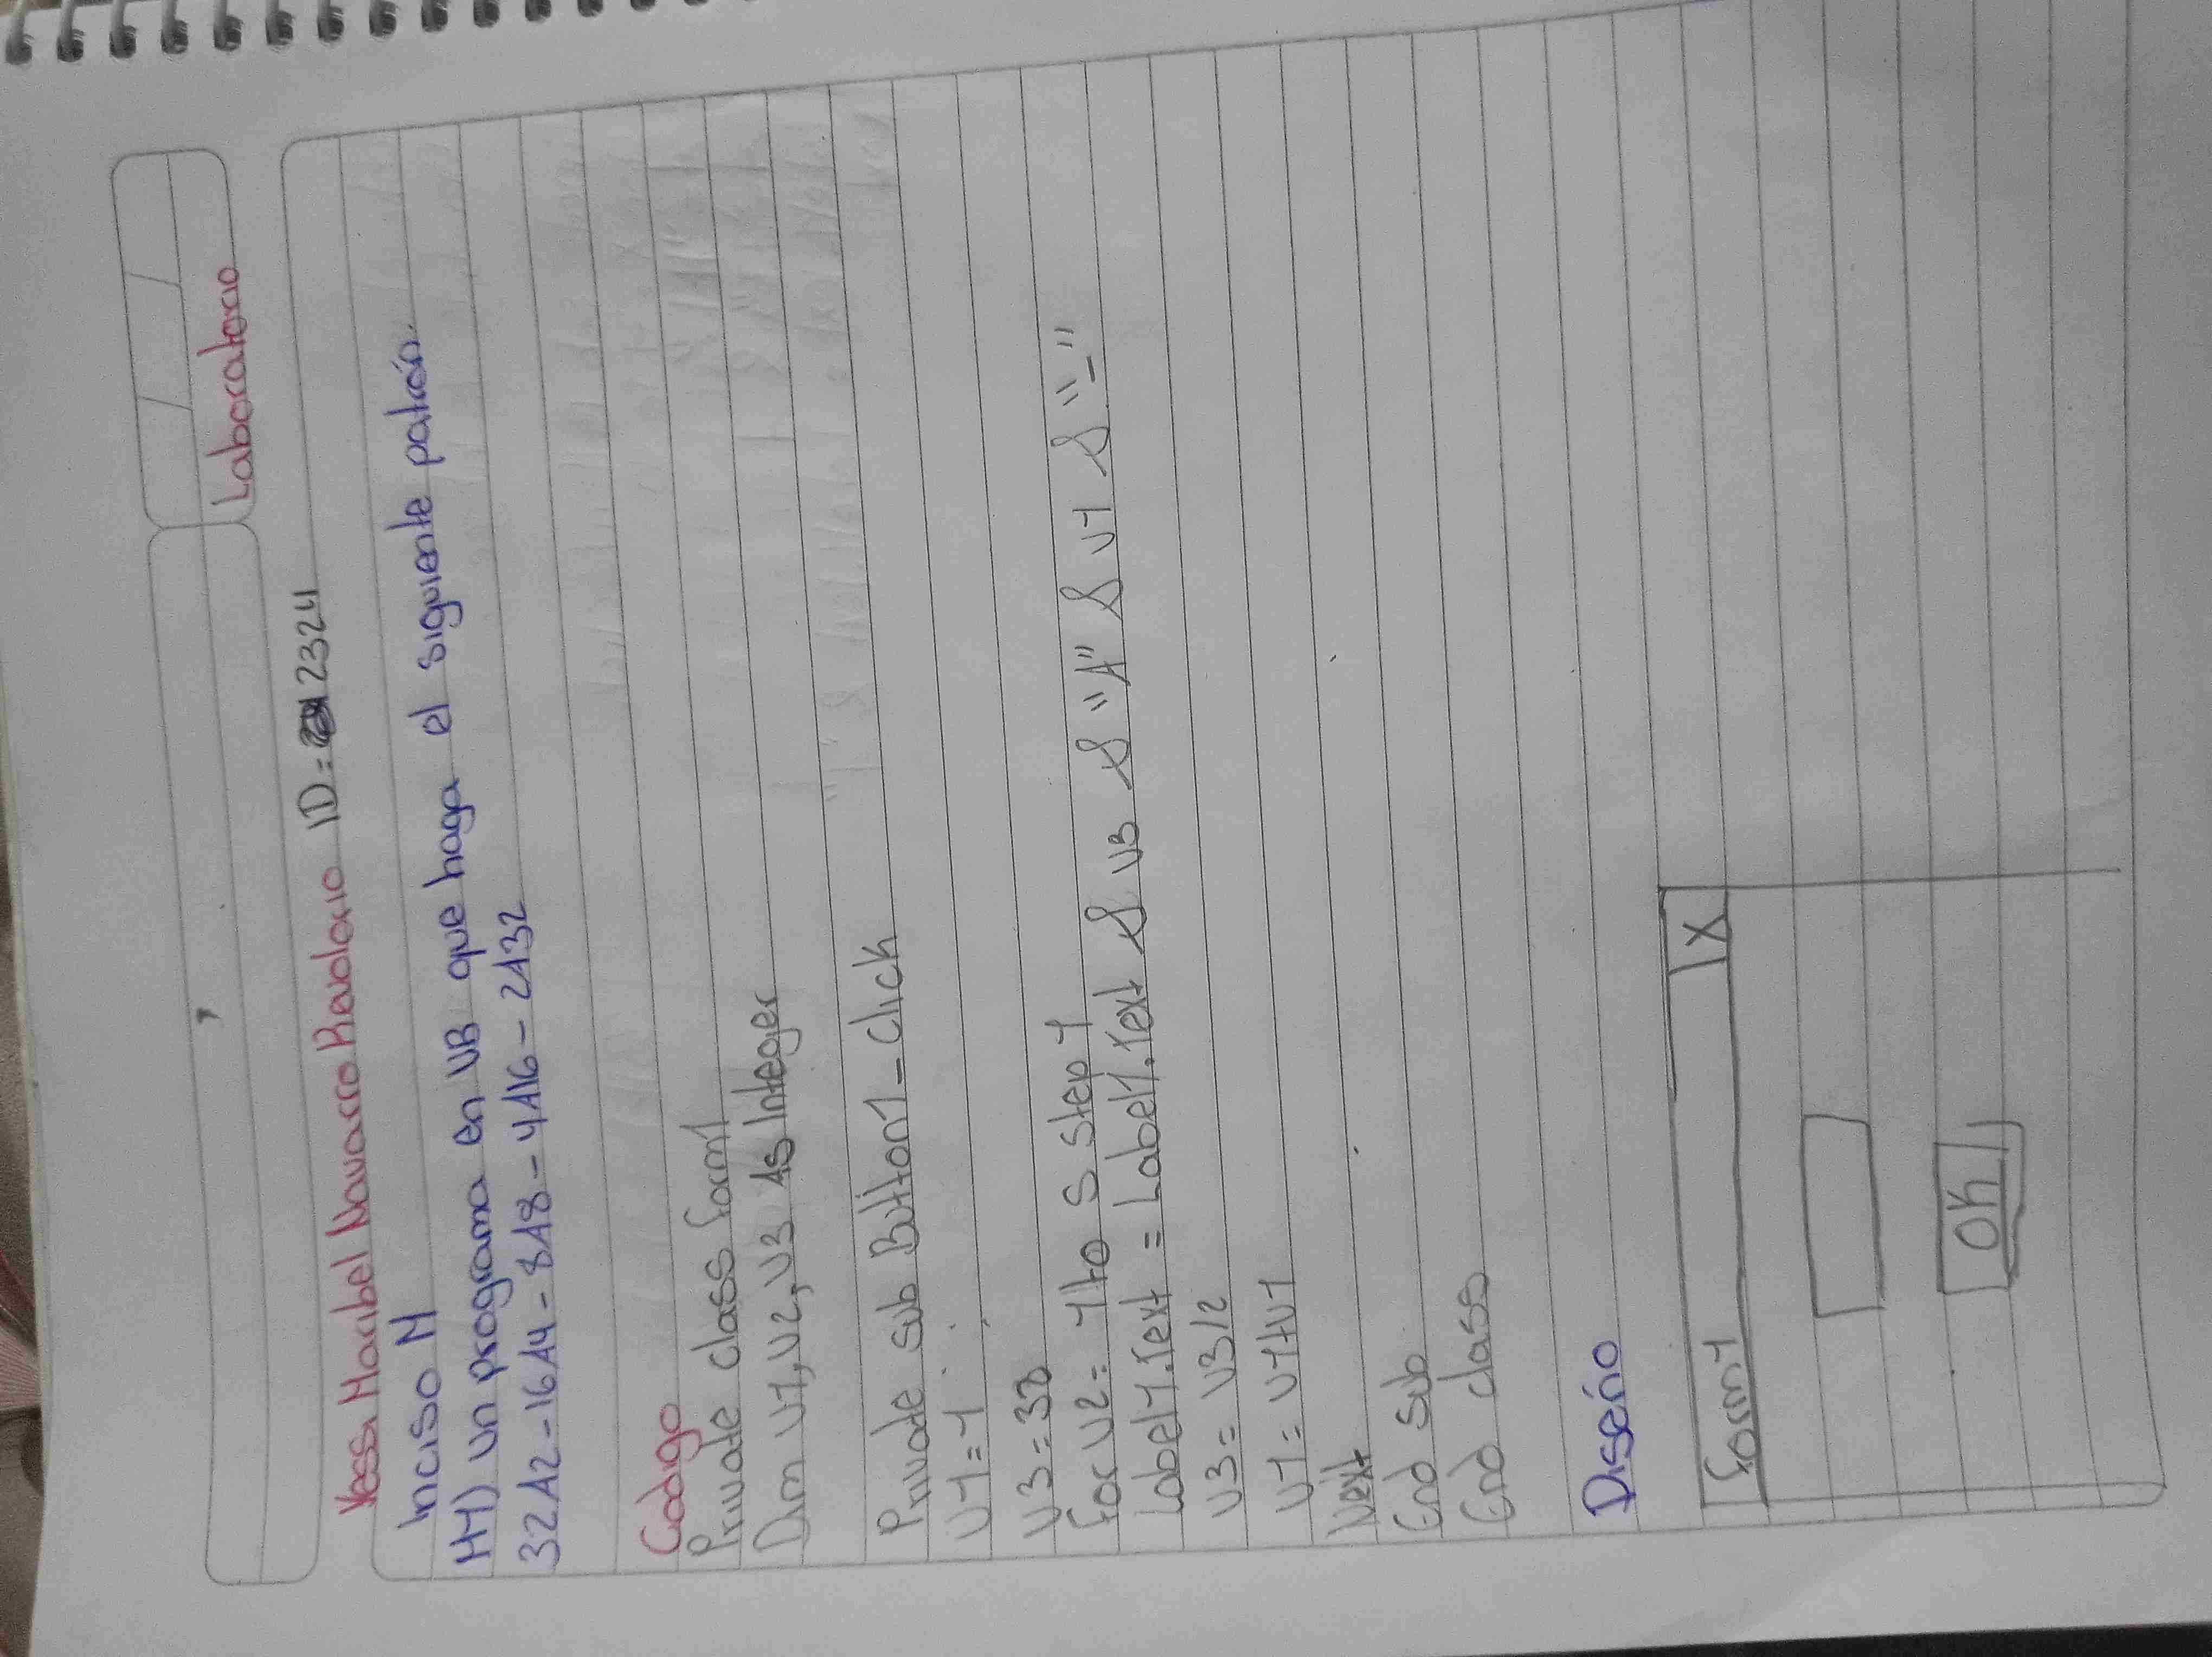 Laboratorio
Yessi Maribel Navarro Revolorio ID= 2324
Inciso M
M1) Un programa en VB que haga el siguiente patrón.
32A2-16A4-8A8-4A16-2A32
Codigo
Private class form1
Dim V1, V2, V3 As Integer
Private sub Button1_Click
V1=1
V3=32
For V2= 1 to 5 step 1
Label1.Text = Label1.Text & V3 & "A" & V1 & "-"
V3= V3/2
V1= V1+V1
Next
End sub
End class
Diseño
Form1 X
OK